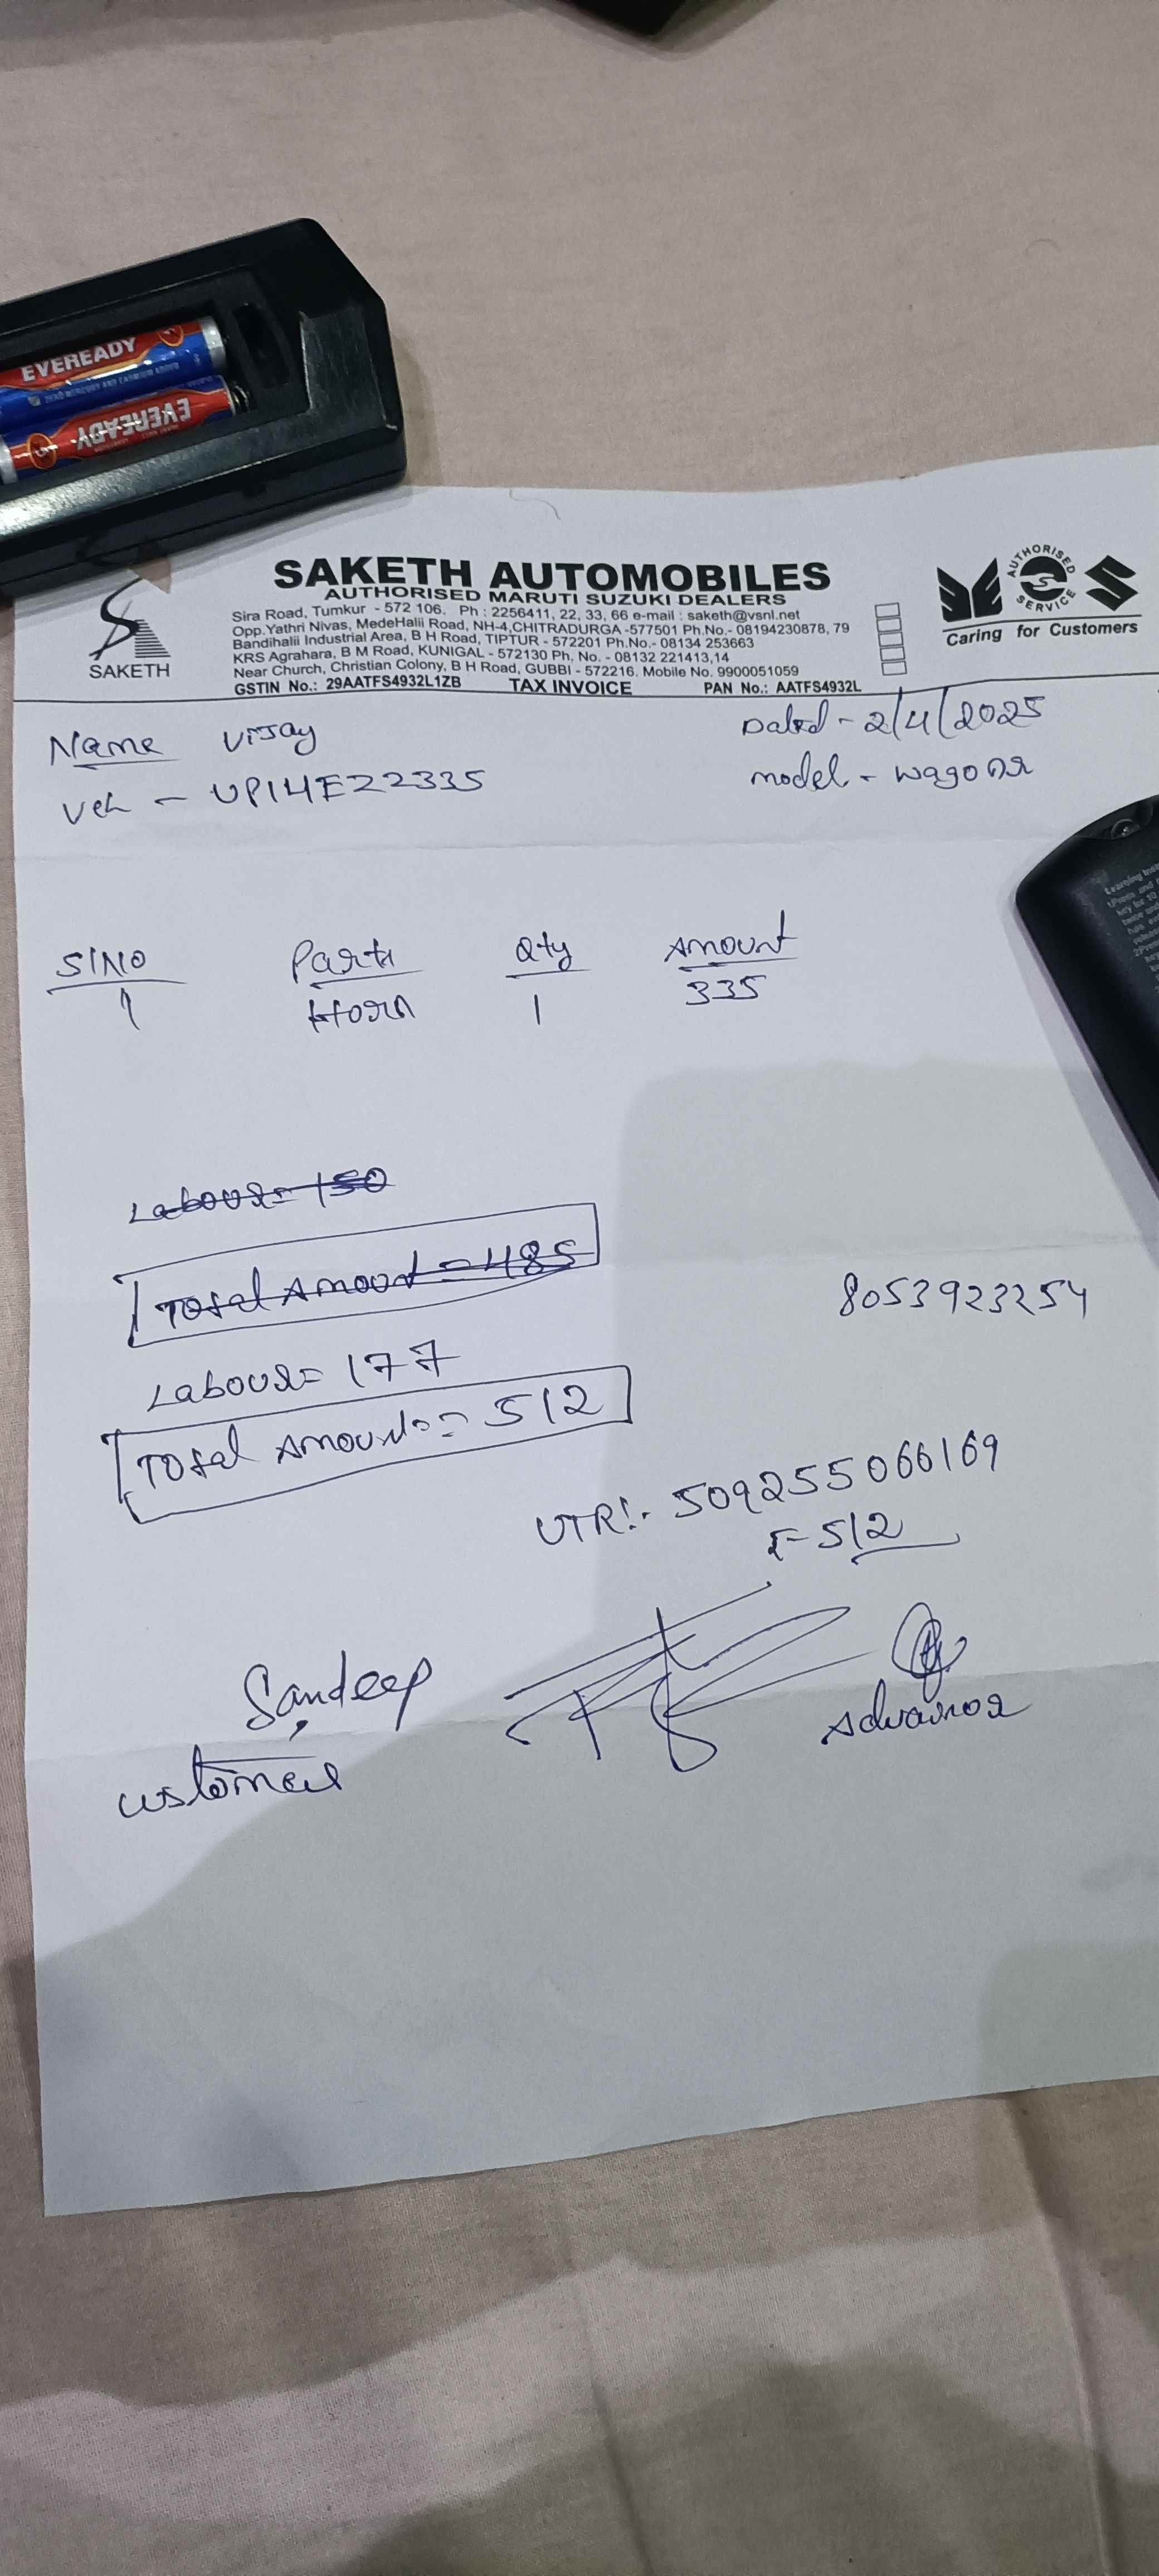 EVEREADY
ZERO MERCURY AND CADMIUM ADDED
EVEREADY
SAKETH AUTOMOBILES
AUTHORISED MARUTI SUZUKI DEALERS
Sira Road, Tumkur - 572 106. Ph : 2256411, 22, 33, 66 e-mail : saketh@vsnl.net
Opp.Yathri Nivas, MedeHalli Road, NH-4,CHITRADURGA -577501 Ph.No.- 08194230878, 79
Bandihalli Industrial Area, B H Road, TIPTUR - 572201 Ph.No.- 08134 253663
KRS Agrahara, B M Road, KUNIGAL - 572130 Ph. No. - 08132 221413,14
Near Church, Christian Colony, B H Road, GUBBI - 572216. Mobile No. 9900051059
GSTIN No.: 29AATFS4932L1ZB TAX INVOICE PAN No.: AATFS4932L
SAKETH
AUTHORISED SERVICE
Caring for Customers
Name Vijay
Dated - 2/4/2025
Veh - UP14EZ2335
model - wagonr
S/NO Parts Qty Amount
1 Horn 1 335
Labour = 150
Total Amount = 485
8053923254
Labour = 177
Total Amount = 512
UTR:- 509255066169
₹- 512
Sandeep
customer
Advaisor